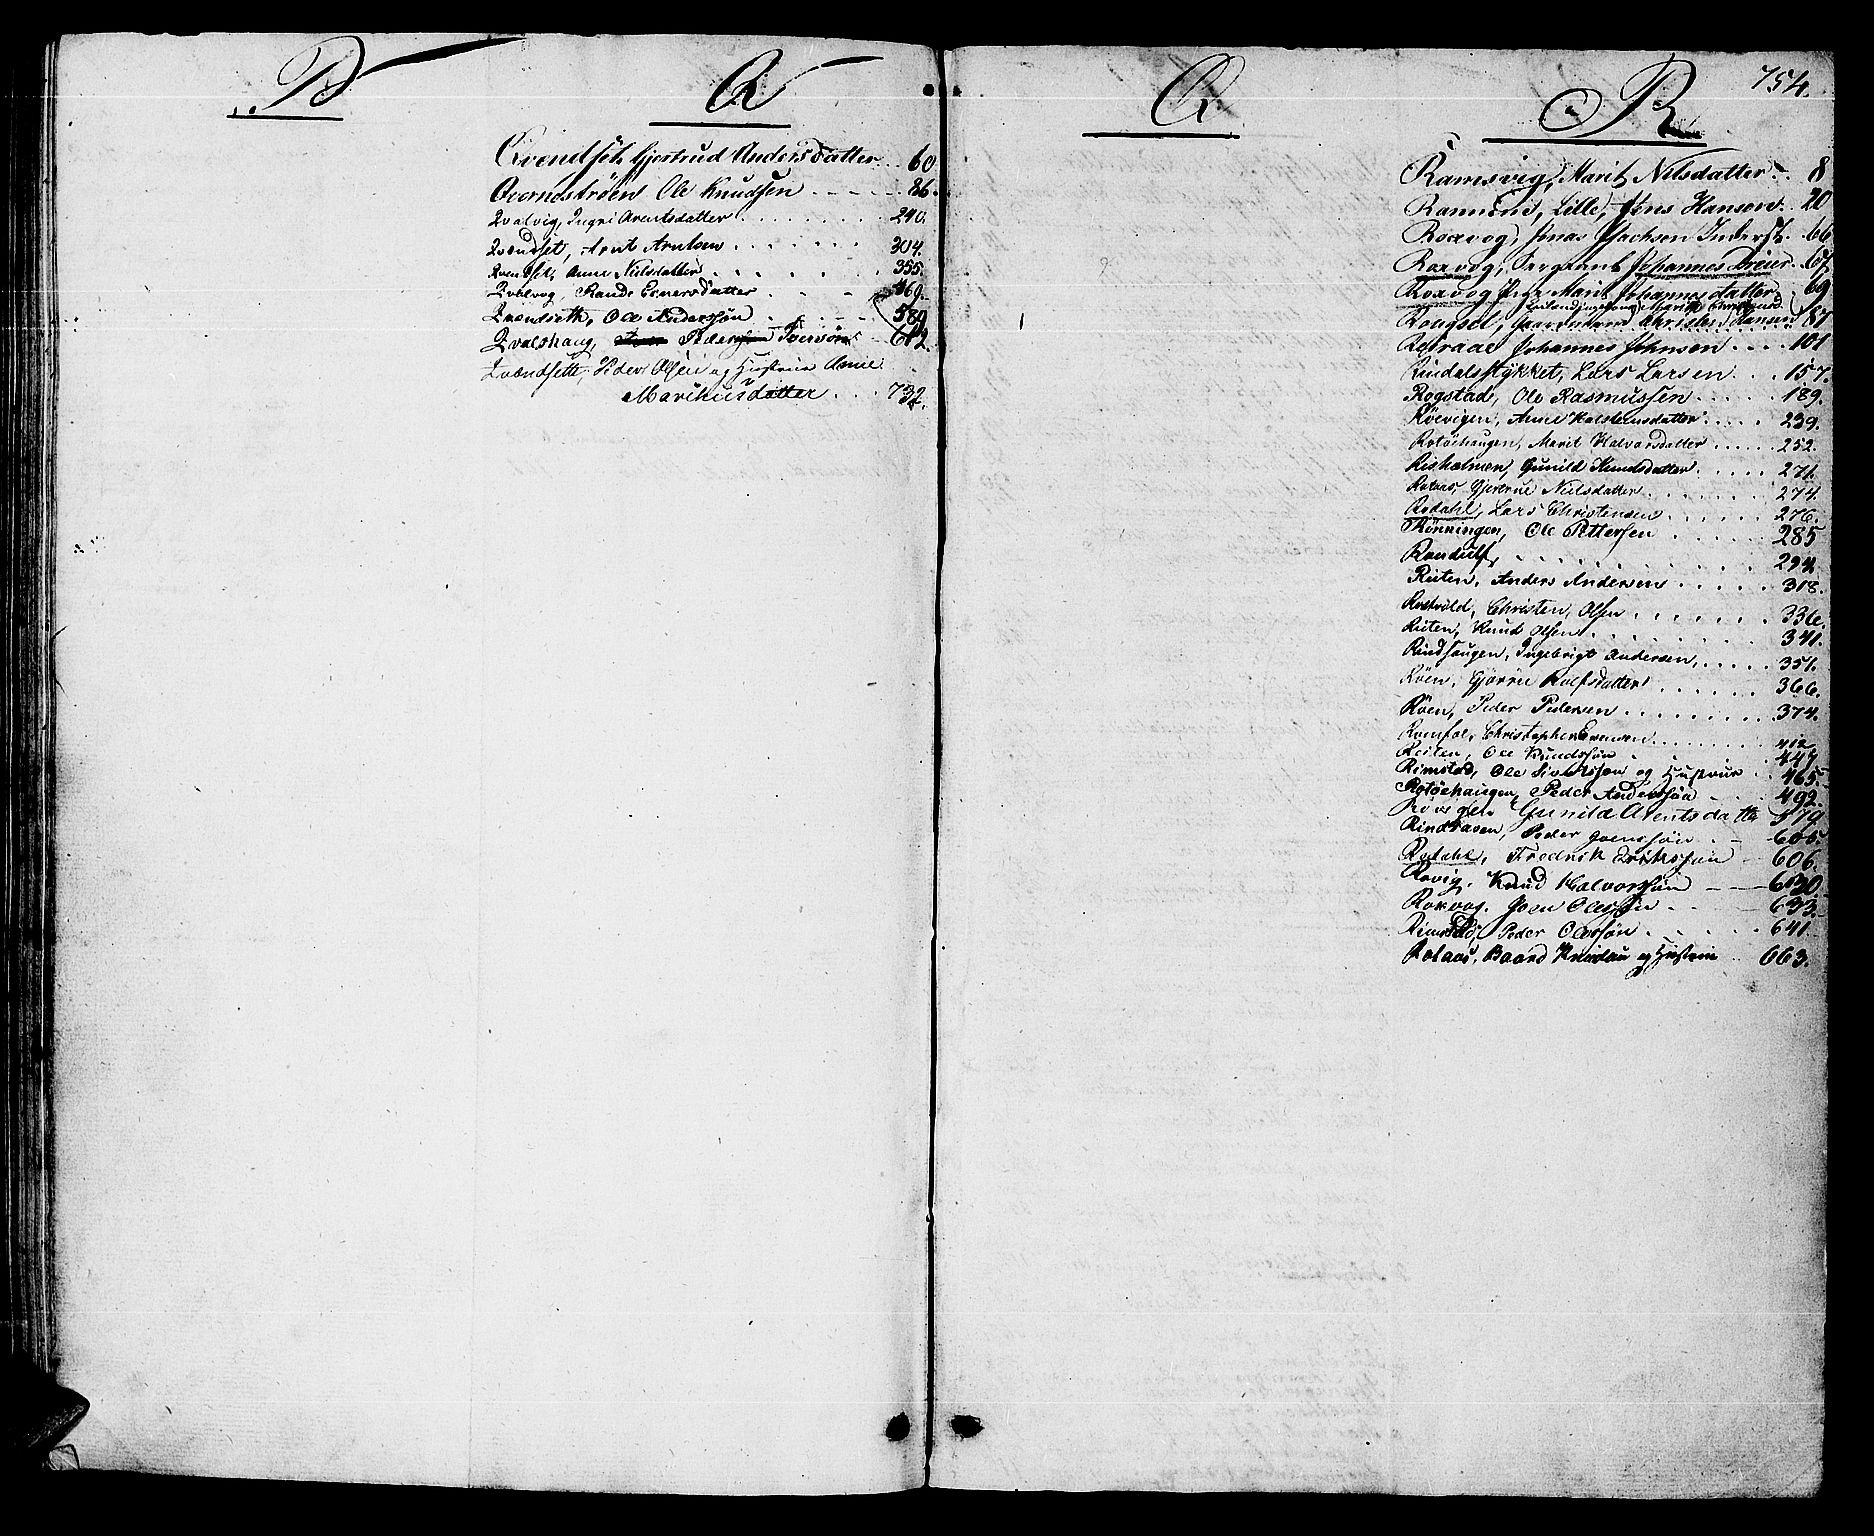 P
Q
Qvendset, Gjertrud Andersdatter 60
Qverneströen Ole Knudsen 86.
Qvalvig, Ingri Arentsdatter 240.
Qvendset, Arnt Arntsen 304.
Qvendset, Anne Nielsdatter 355.
Qvalvog, Rande Einersdatter 469.
Qvendseth, Ole Anderssøn 589
Qvalshaug, Peder Iversøn 612.
Qvendsett, Peder Olsen og Hustrue Anne
Marthusdatter 732.
Q
754.
R
Ramsvig, Marit Nilsdatter 8
Ranmene, Lille, Jens Hansen 20
Roxvog, Jonas Jachsen Inderst. 66
Roxvog, Sergeant Johannes Dreier 67
Roxvog, Inger Marit Johannesdatter 69
Rougset, Gaardmand Christen Hansen 87
Refraae Johannes Johnsen 101
Rindalsstykket, Lars Larsen 157.
Rogstad, Ole Rasmussen 189.
Röevigen, Anne Halsteinsdatter 239.
Rotöehaugen, Marit Halvorsdatter 252.
Risholmen, Gunild Knudsdatter 271.
Rotaas, Gjertrue Nielsdatter 274.
Rodahl, Lars Christensen 276.
Rönningen, Ole Pettersen 285
Randulf, 294
Ruten, Anders Andersen 318.
Christen Olsen 336.
Ruten, Knud Olsen 341.
Rindhaugen, Ingebrigt Andersen, 351.
Röen, Gjørru Rolfsdatter 366.
Röen, Peder Pedersen 374.
Romfol, Christopher Evensen 412
Reiten, Ole Knudssøn 447
Rimstad, Ole Sivertssøn og Hustrue 465.
Rotöehaugen, Peder Anderssøn 492.
Røvigen Gunild Arentsdatte 579
Rindaasen, Peder Joenssøn 605.
Rodahl, Fredrik Erikssøn 606.
Røvig, Knud Halvorssøn 630.
Roxvog, Joen Olessøn 633.
Rimstad, Peder Olessøn 641.
Rotaas, Baard Knudsøn og Hustrue 663.